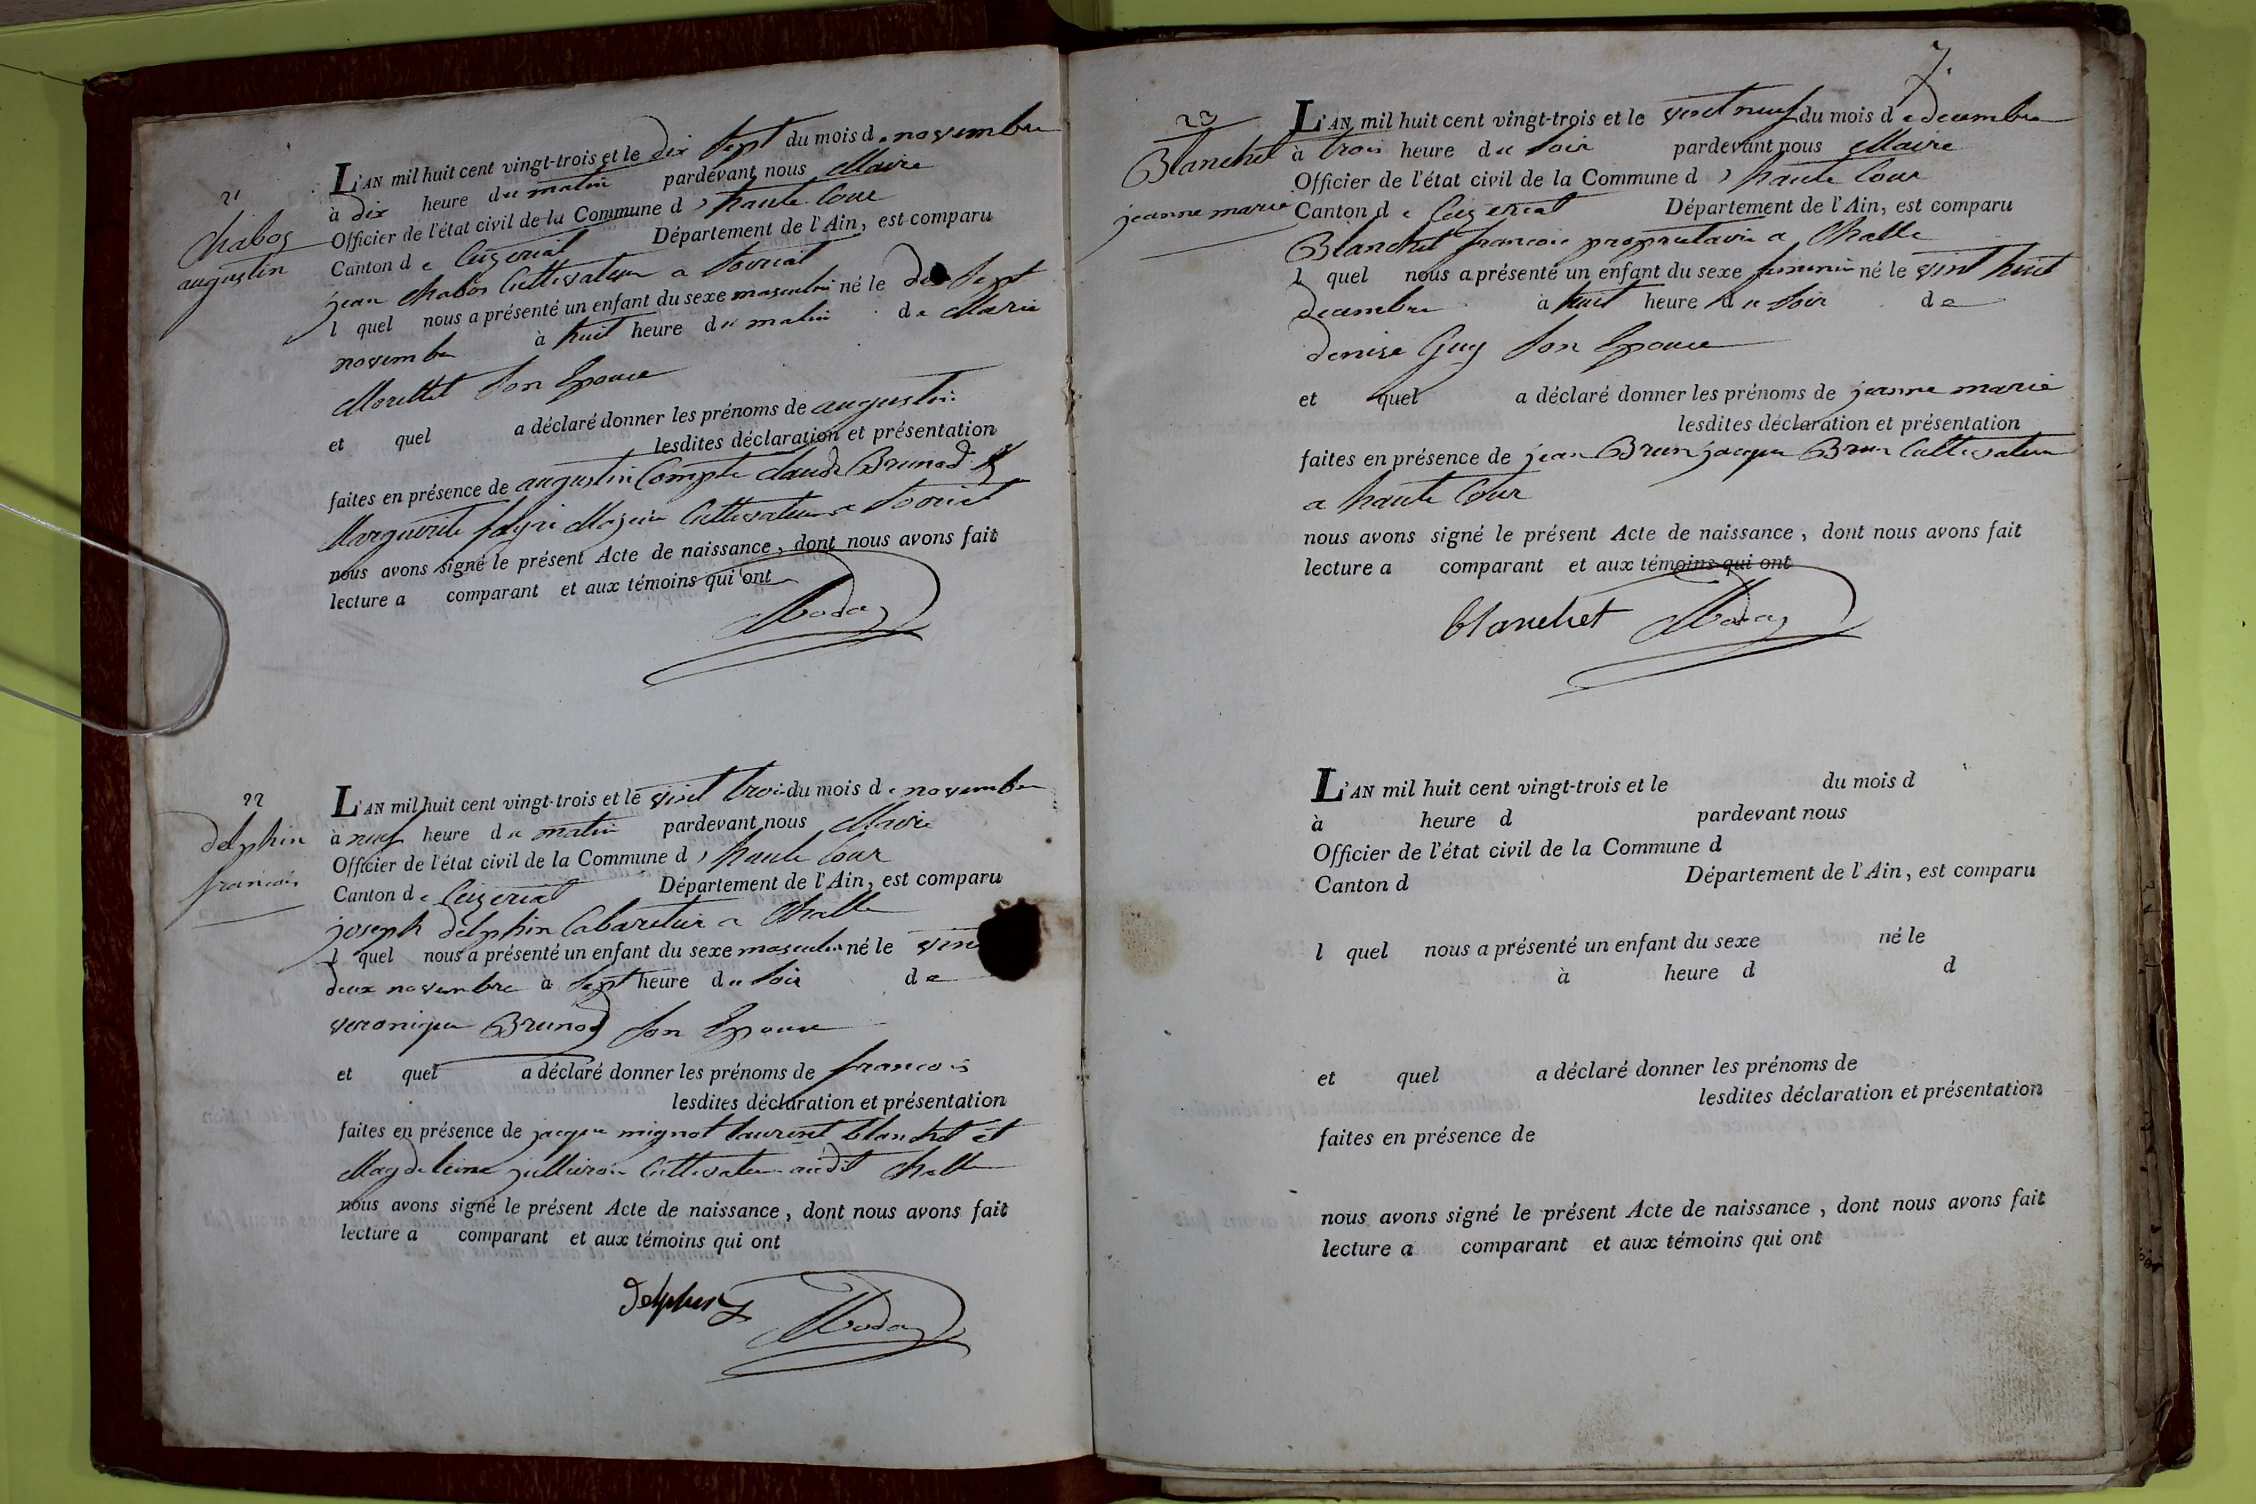 21
chabos
augustin
L'AN mil huit cent vingt-trois et le dix Sept du mois de novembre
à dix heure du matin pardevant nous Maire
Officier de l'état civil de la Commune d'haute Cour
Canton de Ceizeriat Département de l'Ain, est comparu
jean chabos Cultivateur a
l quel nous a présenté un enfant du sexe masculin né le dix Sept
novembre à huit heure du matin de Marie
Morellet Son Epouce
et quel a déclaré donner les prénoms de augustin
lesdites déclaration et présentation
faites en présence de augustin Compte claude Brunod &
Marguerite Cultivateur a
nous avons signé le présent Acte de naissance, dont nous avons fait
lecture a comparant et aux témoins qui ont
22
delphin
francois
L'AN mil huit cent vingt-trois et le vint trois du mois de novembre
à neuf heure du matin pardevant nous Maire
Officier de l'état civil de la Commune d'haute Cour
Canton de Ceizeriat Département de l'Ain, est comparu
joseph delphin Cabaretier a Challe
l quel nous a présenté un enfant du sexe masculin né le vint
deux novembre à Sept heure du Soir de
veronique Brunod Son Epouce
et quel a déclaré donner les prénoms de francois
lesdites déclaration et présentation
faites en présence de jacque mignot laurent blanchet et
Magdeleine Cultivateur audit Challe
nous avons signé le présent Acte de naissance, dont nous avons fait
lecture a comparant et aux témoins qui ont
Delphin
7.
23
Blanchet
jeanne marie
L'AN mil huit cent vingt-trois et le vint neuf du mois de decembre
à trois heure du Soir pardevant nous Maire
Officier de l'état civil de la Commune d'haute Cour
Canton de Ceizeriat Département de l'Ain, est comparu
Blanchet francois proprietaire a Challe
l quel nous a présenté un enfant du sexe feminin né le vint huit
decembre à huit heure du Soir de
denise Guy Son Epouce
et quel a déclaré donner les prénoms de jeanne marie
lesdites déclaration et présentation
faites en présence de jean Brun jacque Brun Cultivateur
a haute Cour
nous avons signé le présent Acte de naissance, dont nous avons fait
lecture a comparant et aux témoins qui ont
blanchet
L'AN mil huit cent vingt-trois et le du mois d
à heure d pardevant nous
Officier de l'état civil de la Commune d
Canton d Département de l'Ain, est comparu
l quel nous a présenté un enfant du sexe né le
à heure d d
et quel a déclaré donner les prénoms de
lesdites déclaration et présentation
faites en présence de
nous avons signé le présent Acte de naissance, dont nous avons fait
lecture a comparant et aux témoins qui ont